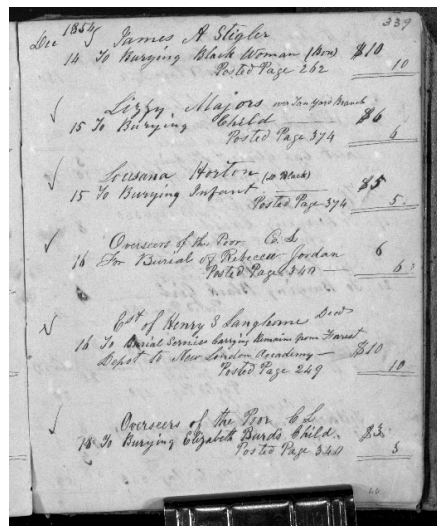 339
Dec 1854 James A Stigler
14 To Burying Black Woman (Box) $10
Posted Page 262 10
Lizzy Majors over Tan Yard Branch
15 To Burying Child $6
Posted Page 374 6
Lousana Horton
15 To Burying Infant $5
Posted Page 374 5
Overseers of the Poor C. L.
16 For Burial of Rebecca Jordan 6
Posted Page 340 6
Est of Henry S Langhorne Decd
16 To Burial Services Carrying Remains from Forest
Depot to New London Academy — $10
Posted Page 249 10
Overseers of the Poor C L
18 To Burying Elizabeth Burds Child $3
Posted Page 340 3